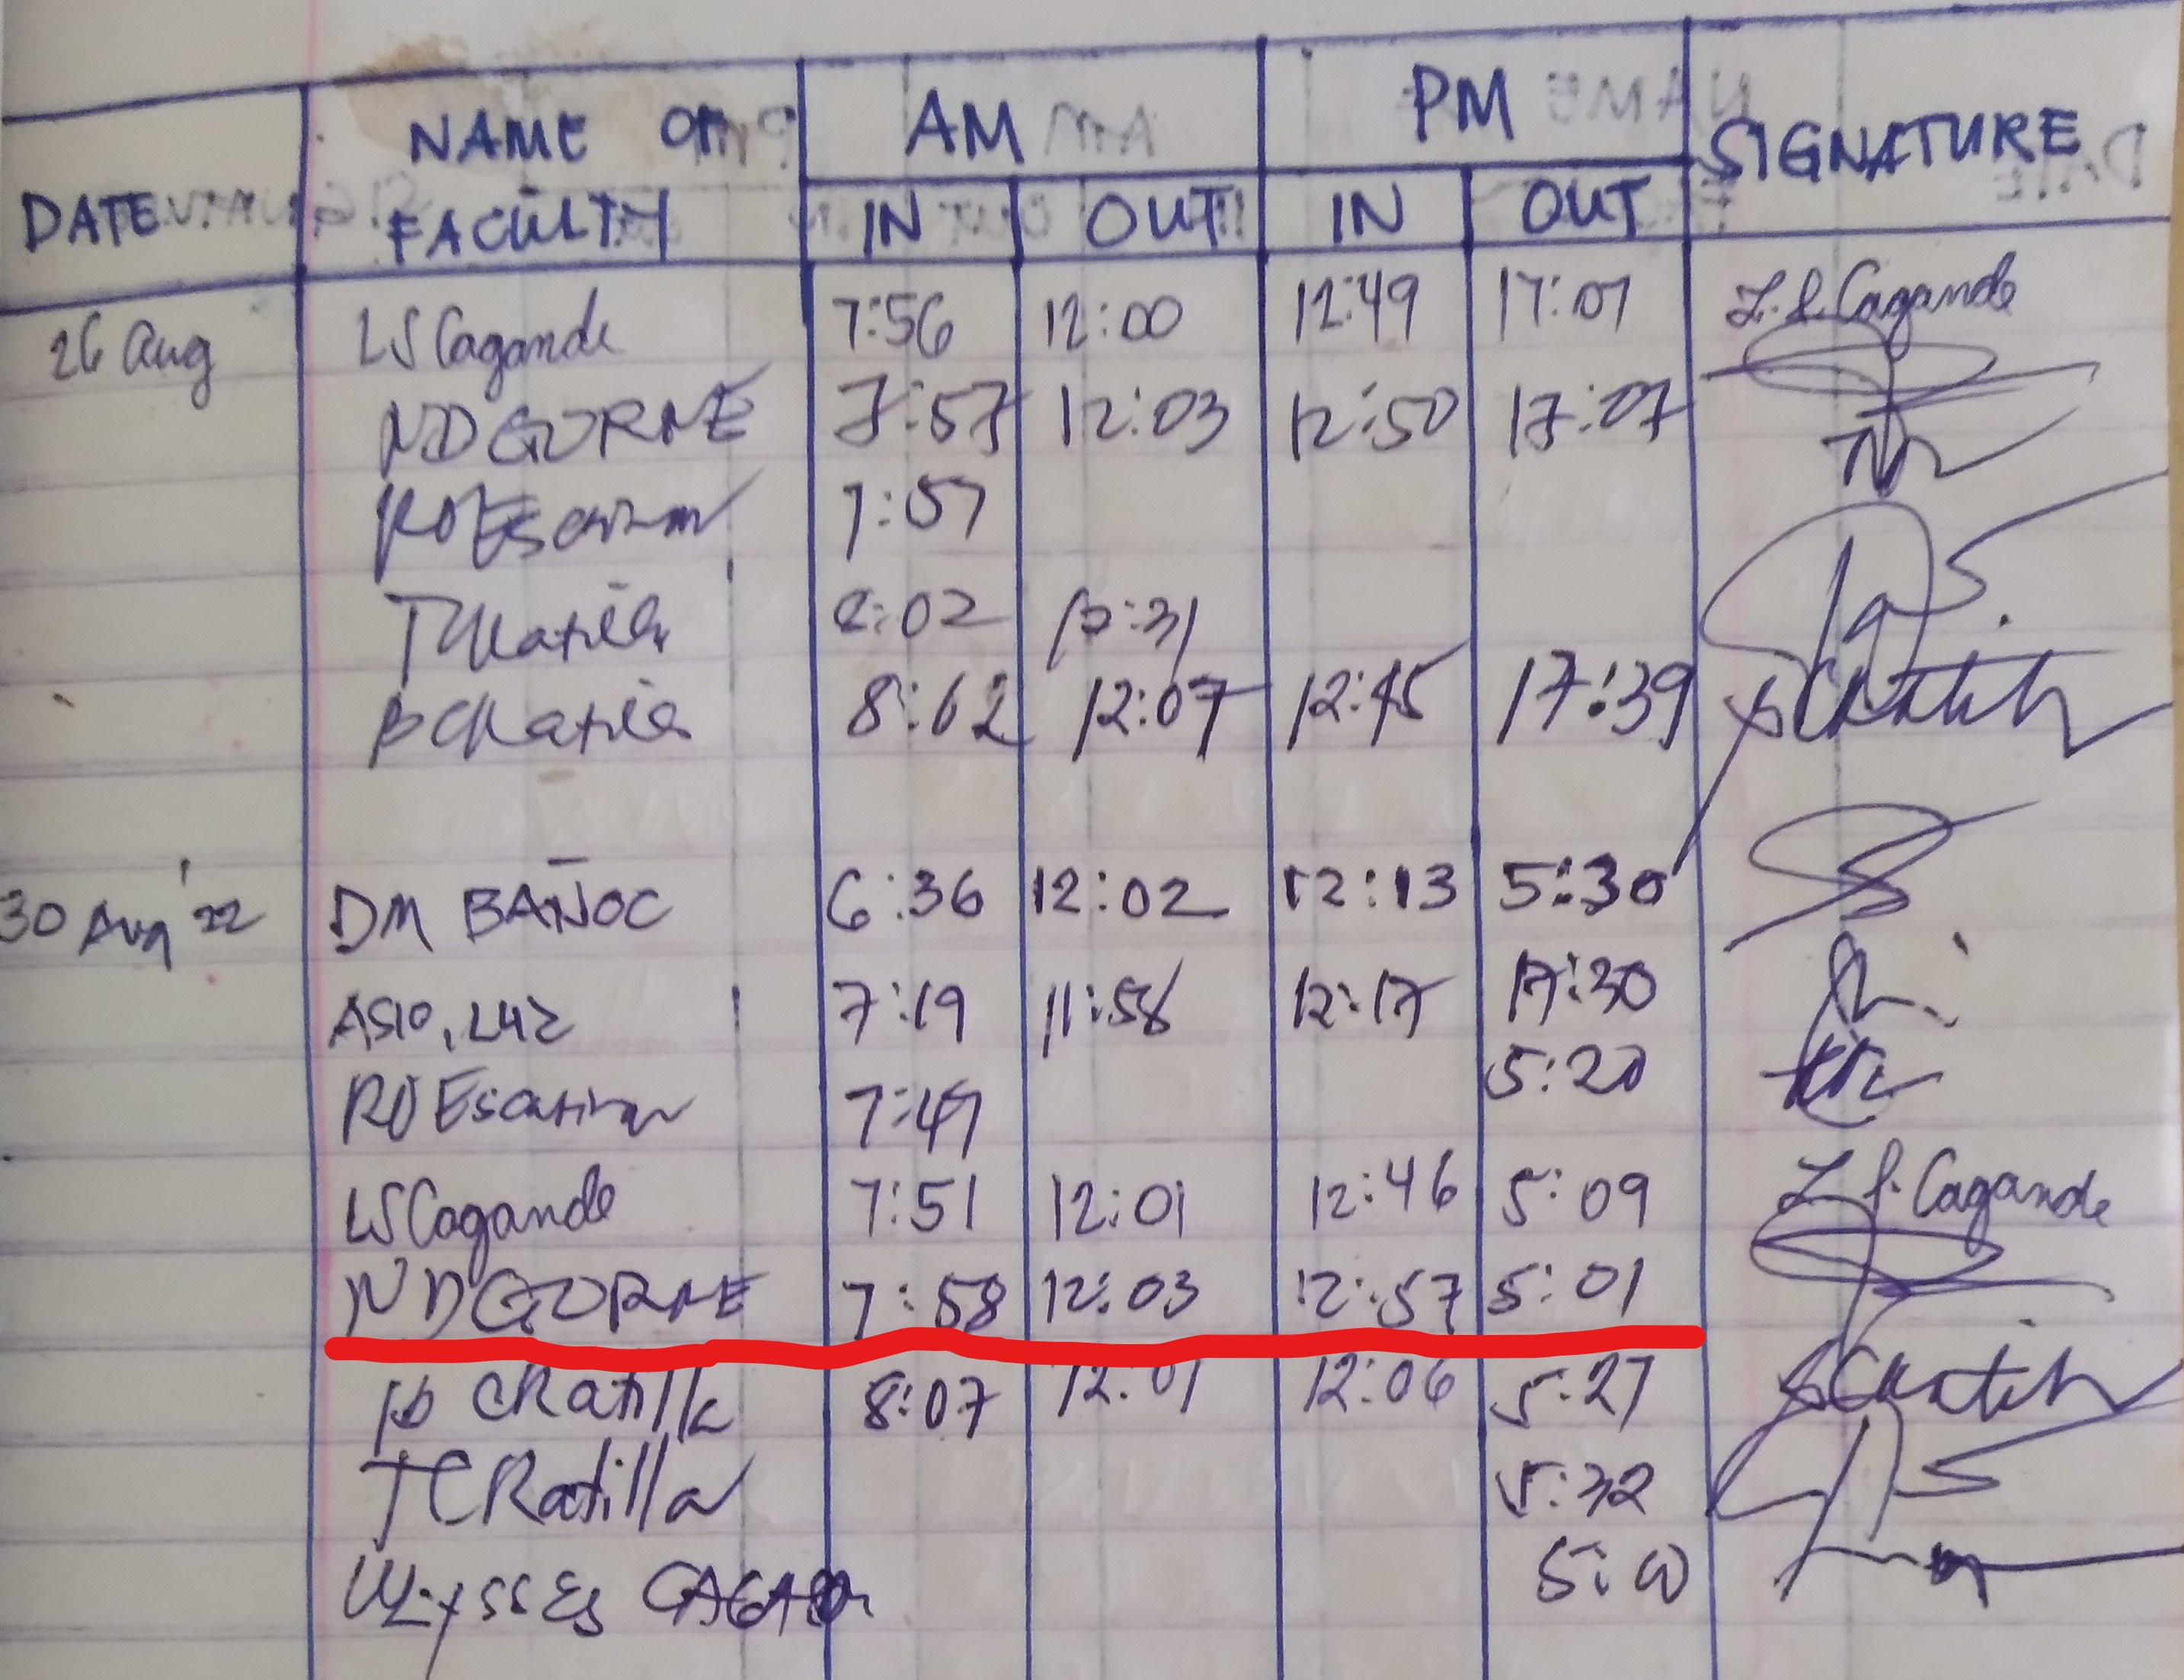 DATE NAME OF FACULTY AM PM SIGNATURE
IN OUT IN OUT
26 Aug LS Cagande 7:56 12:00 12:49 17:07 L.S. Cagande
ND GORNE 7:57 12:03 12:50 17:07
RO Escasinas 7:57
TC Ratilla 8:02 12:31
BC Ratilla 8:02 12:07 12:45 17:39
30 Aug '22 DM BAÑOC 6:36 12:02 12:13 5:30
ASIO, LUZ 7:19 11:58 12:17 17:30
RO Escasinas 7:47 5:20
LS Cagande 7:51 12:01 12:46 5:09 L S. Cagande
ND GORNE 7:58 12:03 12:57 5:01
CRatilla 8:07 12:01 12:06 5:27
TC Ratilla 5:32
ULYSSES